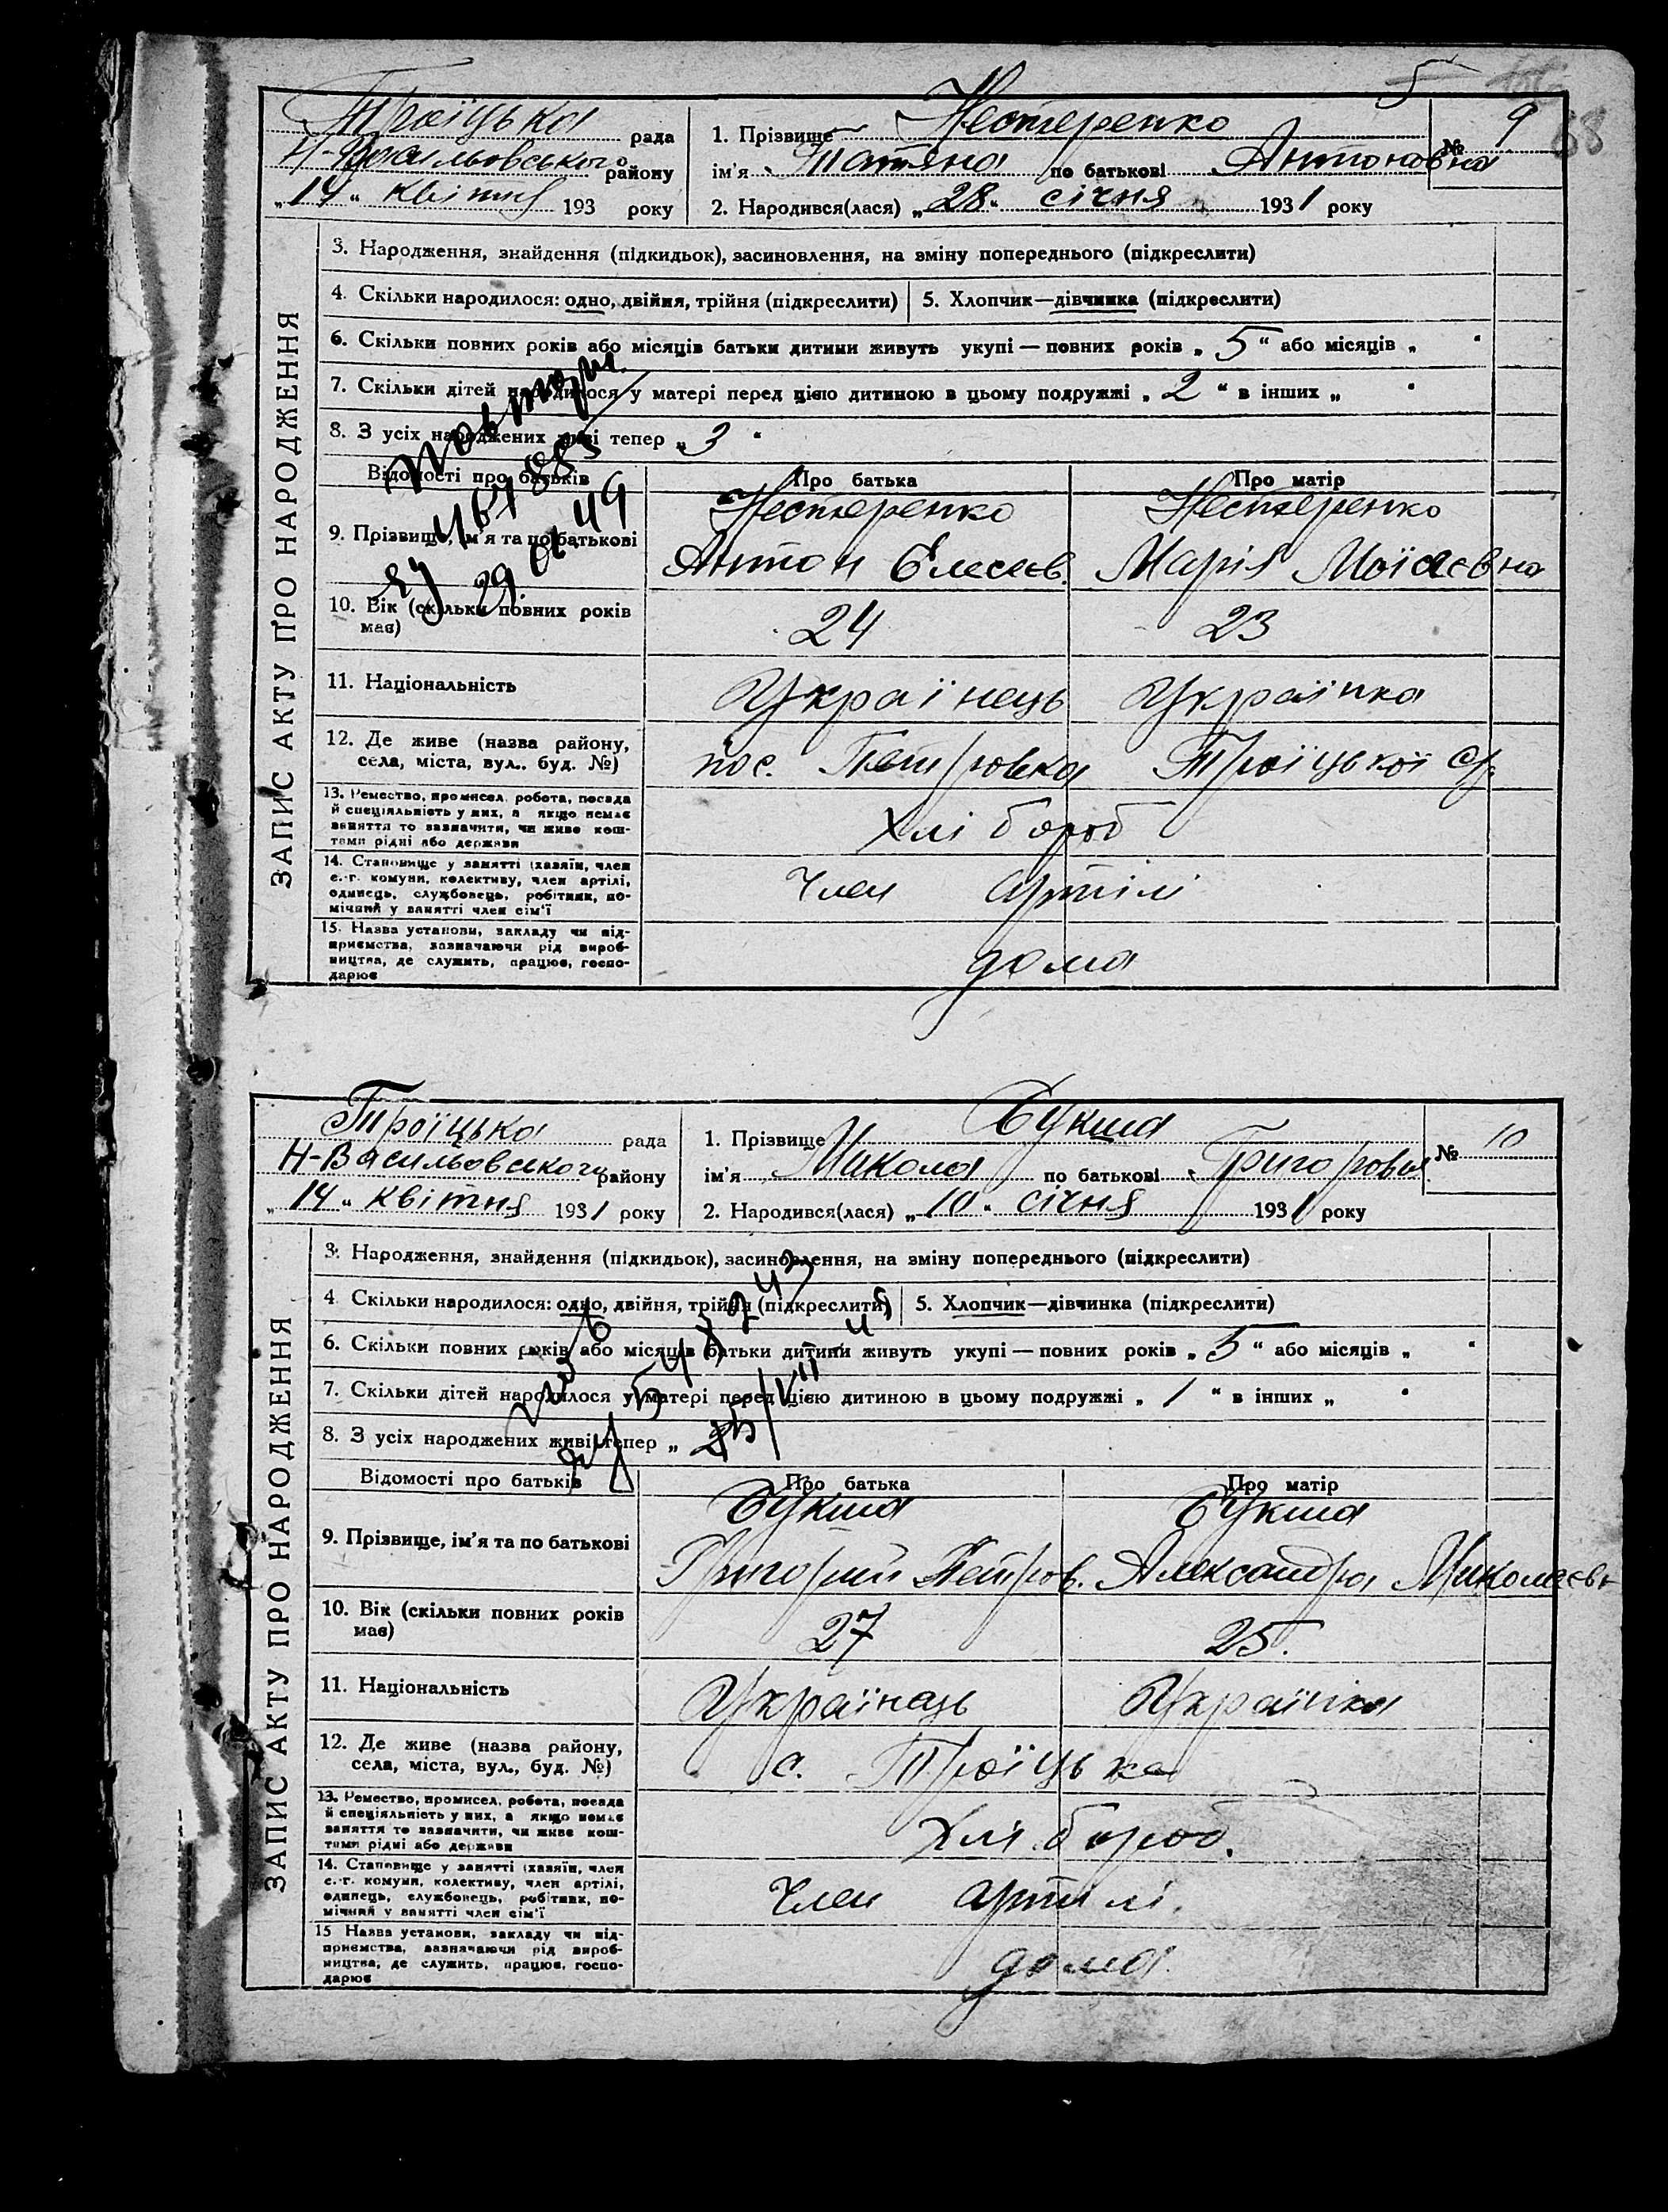 5
68
Троїцька рада
Н-Васильовського району
„14“ квітня 193 року
1. Прізвище Нестеренко
ім'я Татяна по батькові Антоновна
№ 9
2. Народився(лася) „28“ січня 1931 року
ЗАПИС АКТУ ПРО НАРОДЖЕННЯ
3. Народження, знайдення (підкидьок), засиновлення, на зміну попереднього (підкреслити)
4. Скільки народилося: одно, двійня, трійня (підкреслити) 5. Хлопчик—дівчинка (підкреслити)
6. Скільки повних років або місяців батьки дитини живуть укупі — повних років „5“ або місяців „ “
7. Скільки дітей народилося у матері перед цією дитиною в цьому подружжі „2“ в інших „ “
8. З усіх народжених живі тепер „3“
Повторн.
885
29 01 49
Відомості про батьків Про батька Про матір
9. Прізвище, ім'я та по батькові
Нестеренко Нестеренко
Антон Елесеєв. Марія Моісаєвна
10. Вік (скільки повних років має) 24 23
11. Національність Українець Українка
12. Де живе (назва району, села, міста, вул., буд. №) пос. Петровка Троїцької с/р
13. Ремество, промисел, робота, посада
й спеціяльність у них, а якщо немає
заняття то зазначити, чи живе кош-
тами рідні або держави
Хлібороб
14. Становище у занятті (хазяїн, член
с.-г. комуни, колективу, член артілі,
одинець, службовець, робітник, по-
мічний у занятті член сім'ї
Член артілі
15. Назва установи, закладу чи під-
приємства, зазначаючи рід вироб-
ництва, де служить, працює, госпо-
дарює
дома
Троїцька рада
Н-Васильовського району
„14“ квітня 1931 року
1. Прізвище Букша
ім'я Микола по батькові Григоров.
№ 10
2. Народився(лася) „10“ січня 1931 року
ЗАПИС АКТУ ПРО НАРОДЖЕННЯ
3. Народження, знайдення (підкидьок), засиновлення, на зміну попереднього (підкреслити)
4. Скільки народилося: одно, двійня, трійня (підкреслити) 5. Хлопчик—дівчинка (підкреслити)
6. Скільки повних років або місяців батьки дитини живуть укупі — повних років „5“ або місяців „ “
7. Скільки дітей народилося у матері перед цією дитиною в цьому подружжі „1“ в інших „ “
8. З усіх народжених живі тепер „
Відомості про батьків Про батька Про матір
9. Прізвище, ім'я та по батькові
Букша Букша
Григорий Петров. Александра Миколаєвн
10. Вік (скільки повних років має) 27 25.
11. Національність Українець Українка
12. Де живе (назва району, села, міста, вул., буд. №) с. Троїцька
13. Ремество, промисел, робота, посада
й спеціяльність у них, а якщо немає
заняття то зазначити, чи живе кош-
тами рідні або держави
Хлібороб.
14. Становище у занятті (хазяїн, член
с.-г. комуни, колективу, член артілі,
одинець, службовець, робітник, по-
мічний у занятті член сім'ї
Член артілі.
15 Назва установи, закладу чи під-
приємства, зазначаючи рід вироб-
ництва, де служить, працює, госпо-
дарює
дома.